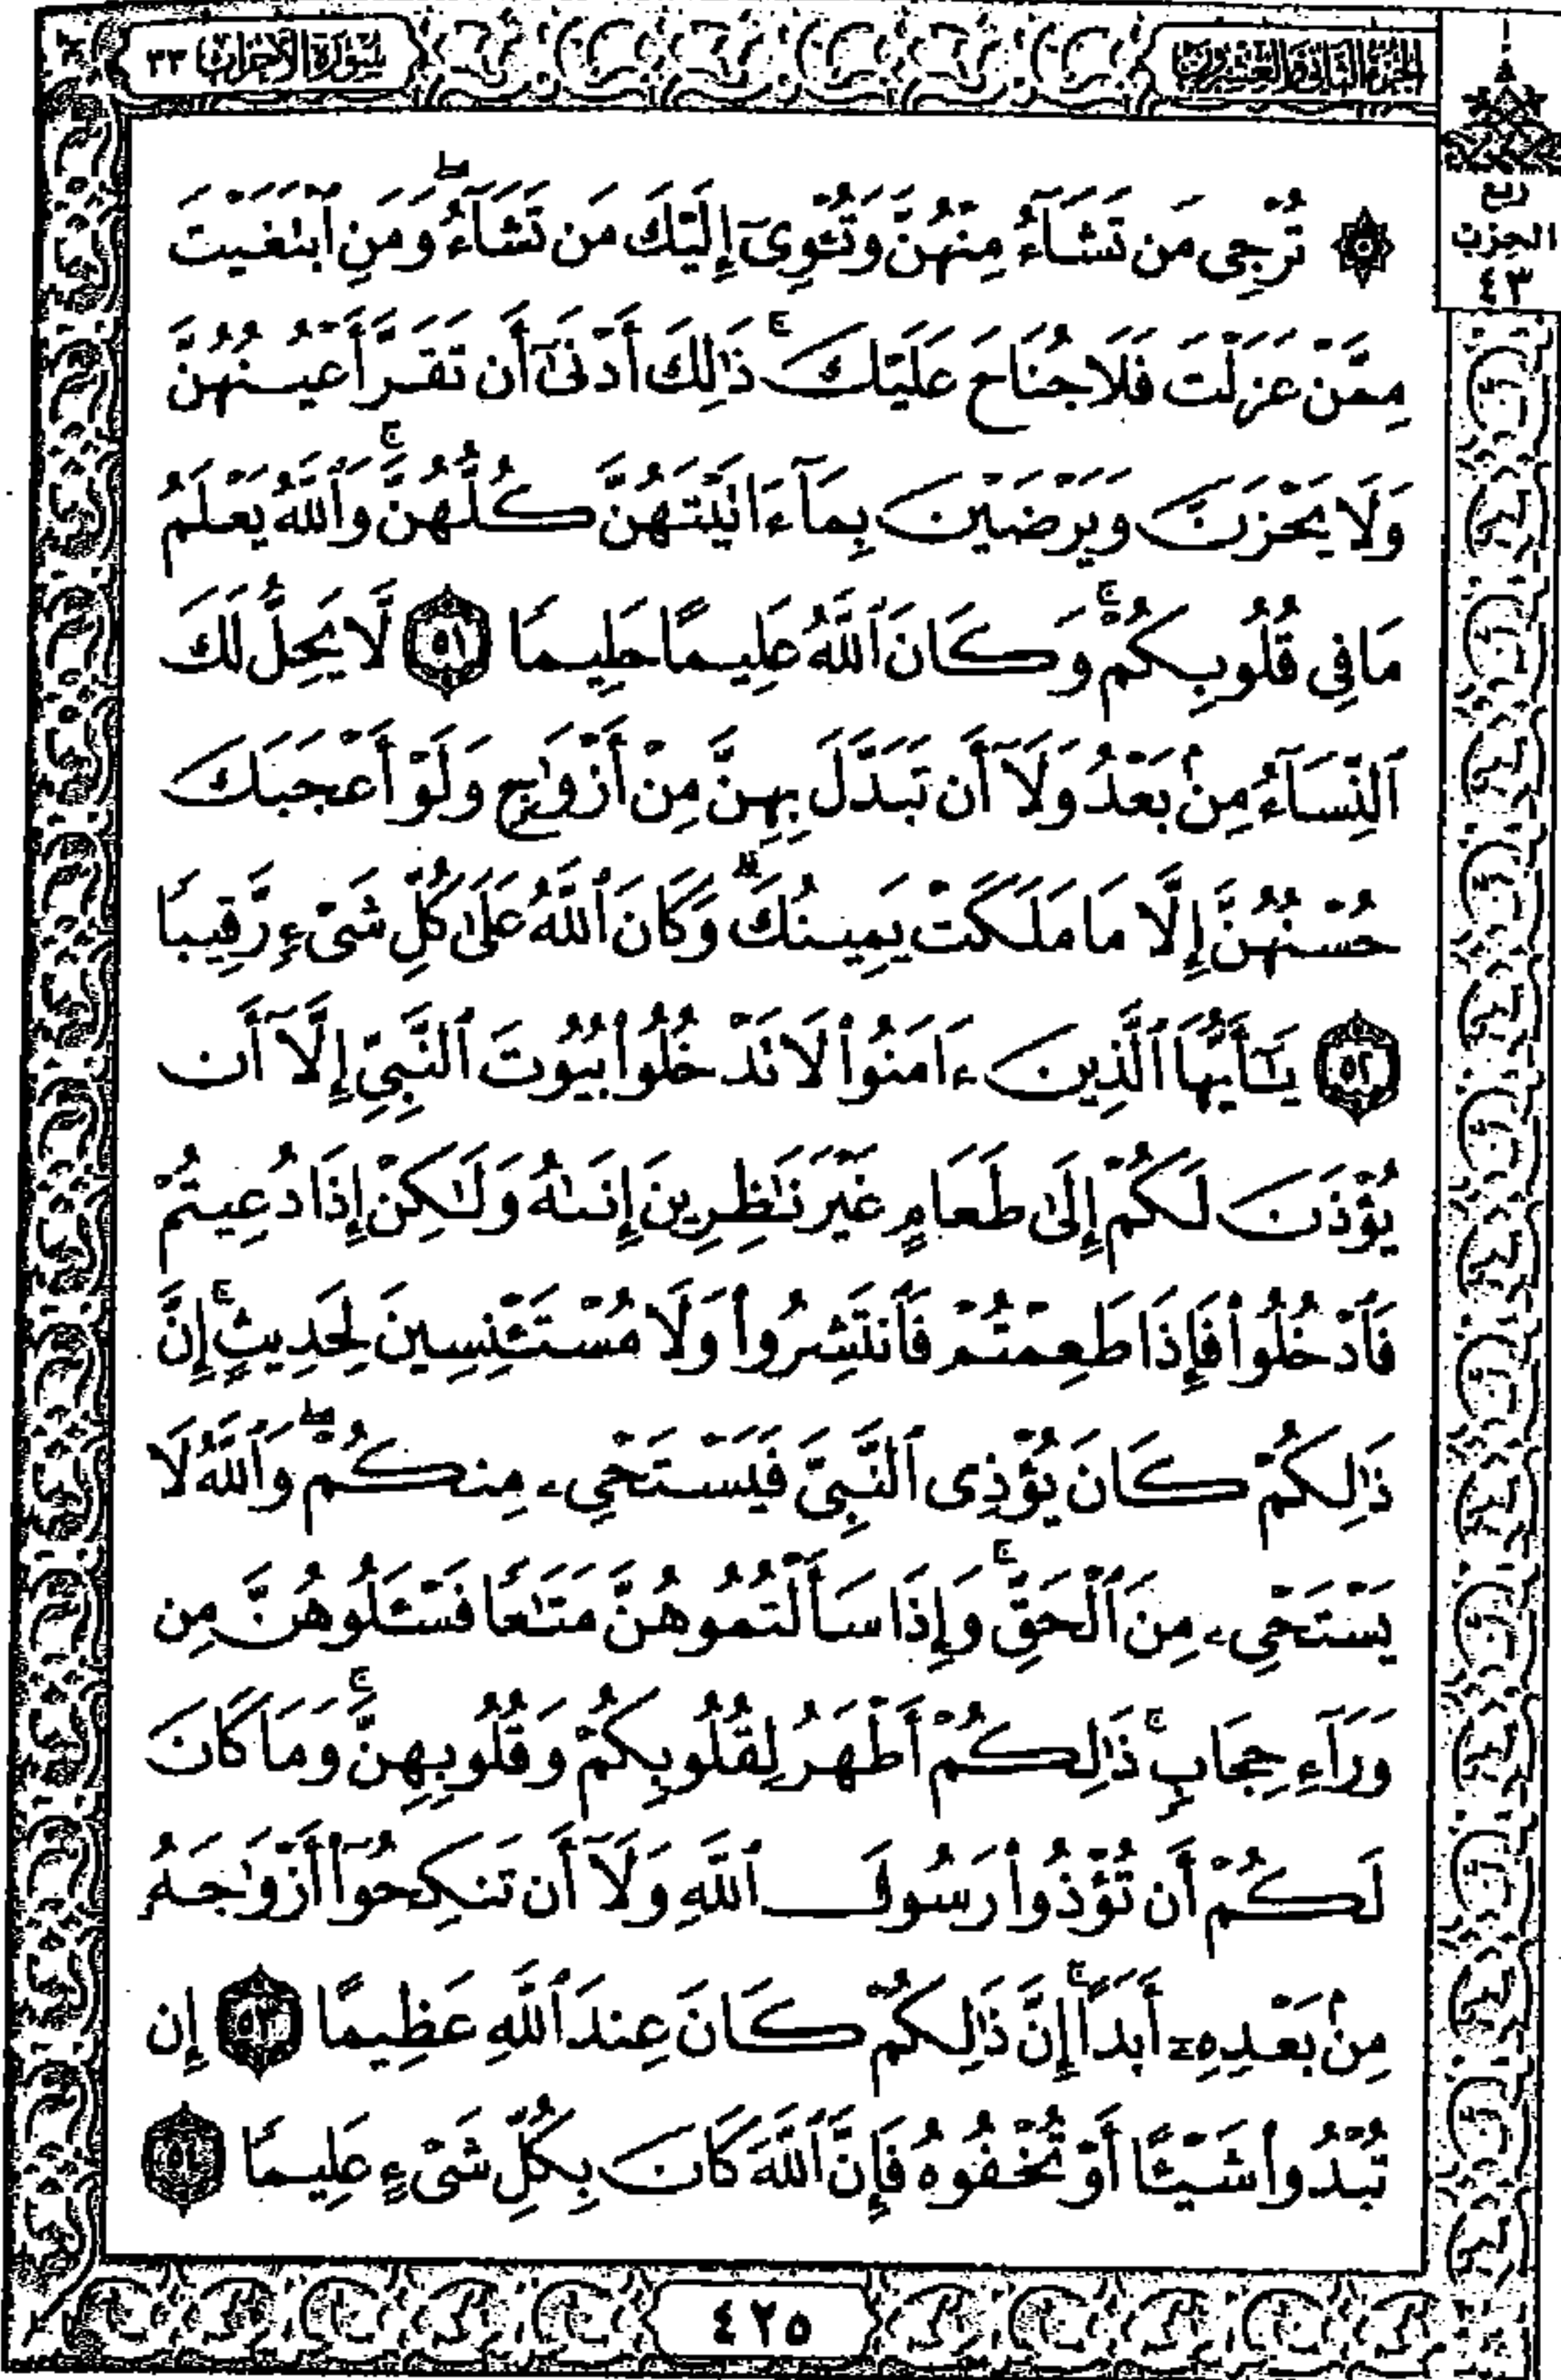 سُورَةُ الأَحْزَابِ ٣٣
الجُزْءُ الثَّانِي وَالعِشْرُونَ
ربع
الحزب
٤٣
۞ تُرْجِى مَن تَشَآءُ مِنْهُنَّ وَتُـْٔوِىٓ إِلَيْكَ مَن تَشَآءُ ۖ وَمَنِ ٱبْتَغَيْتَ
مِمَّنْ عَزَلْتَ فَلَا جُنَاحَ عَلَيْكَ ۚ ذَٰلِكَ أَدْنَىٰٓ أَن تَقَرَّ أَعْيُنُهُنَّ
وَلَا يَحْزَنَّ وَيَرْضَيْنَ بِمَآ ءَاتَيْتَهُنَّ كُلُّهُنَّ ۚ وَٱللَّهُ يَعْلَمُ
مَا فِى قُلُوبِكُمْ ۚ وَكَانَ ٱللَّهُ عَلِيمًا حَلِيمًا ٥١ لَّا يَحِلُّ لَكَ
ٱلنِّسَآءُ مِنۢ بَعْدُ وَلَآ أَن تَبَدَّلَ بِهِنَّ مِنْ أَزْوَٰجٍ وَلَوْ أَعْجَبَكَ
حُسْنُهُنَّ إِلَّا مَا مَلَكَتْ يَمِينُكَ ۗ وَكَانَ ٱللَّهُ عَلَىٰ كُلِّ شَىْءٍ رَّقِيبًا
٥٢ يَـٰٓأَيُّهَا ٱلَّذِينَ ءَامَنُوا۟ لَا تَدْخُلُوا۟ بُيُوتَ ٱلنَّبِىِّ إِلَّآ أَن
يُؤْذَنَ لَكُمْ إِلَىٰ طَعَامٍ غَيْرَ نَـٰظِرِينَ إِنَىٰهُ وَلَـٰكِنْ إِذَا دُعِيتُمْ
فَٱدْخُلُوا۟ فَإِذَا طَعِمْتُمْ فَٱنتَشِرُوا۟ وَلَا مُسْتَـْٔنِسِينَ لِحَدِيثٍ ۚ إِنَّ
ذَٰلِكُمْ كَانَ يُؤْذِى ٱلنَّبِىَّ فَيَسْتَحْىِۦ مِنكُمْ ۖ وَٱللَّهُ لَا
يَسْتَحْىِۦ مِنَ ٱلْحَقِّ ۚ وَإِذَا سَأَلْتُمُوهُنَّ مَتَـٰعًا فَسْـَٔلُوهُنَّ مِن
وَرَآءِ حِجَابٍ ۚ ذَٰلِكُمْ أَطْهَرُ لِقُلُوبِكُمْ وَقُلُوبِهِنَّ ۚ وَمَا كَانَ
لَكُمْ أَن تُؤْذُوا۟ رَسُولَ ٱللَّهِ وَلَآ أَن تَنكِحُوٓا۟ أَزْوَٰجَهُۥ
مِنۢ بَعْدِهِۦٓ أَبَدًا ۚ إِنَّ ذَٰلِكُمْ كَانَ عِندَ ٱللَّهِ عَظِيمًا ٥٣ إِن
تُبْدُوا۟ شَيْـًٔا أَوْ تُخْفُوهُ فَإِنَّ ٱللَّهَ كَانَ بِكُلِّ شَىْءٍ عَلِيمًا ٥٤
٤٢٥